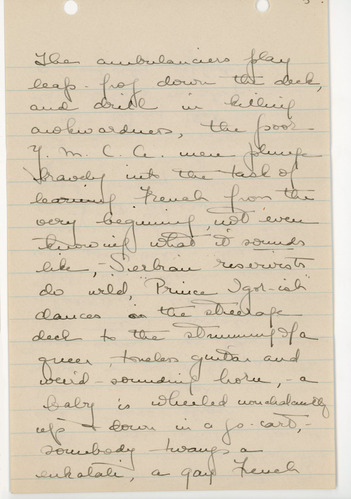 The ambulanciers play
leap-frog down the deck,
and drill in killing
awkwardness, the poor
Y. M. C. A. men plunge
bravely into the task of
learning French from the
very beginning, not even
knowing what it sounds
like,- Serbian reservists
do wild, "Prince Igor-ish"
dances on the steerage
deck to the strumming of a
queer, toneless guitar and
weird-sounding horn, - a
baby is wheeled nonchalantly
up & down in a go-cart,-
somebody twangs a
eukalali, a gay French